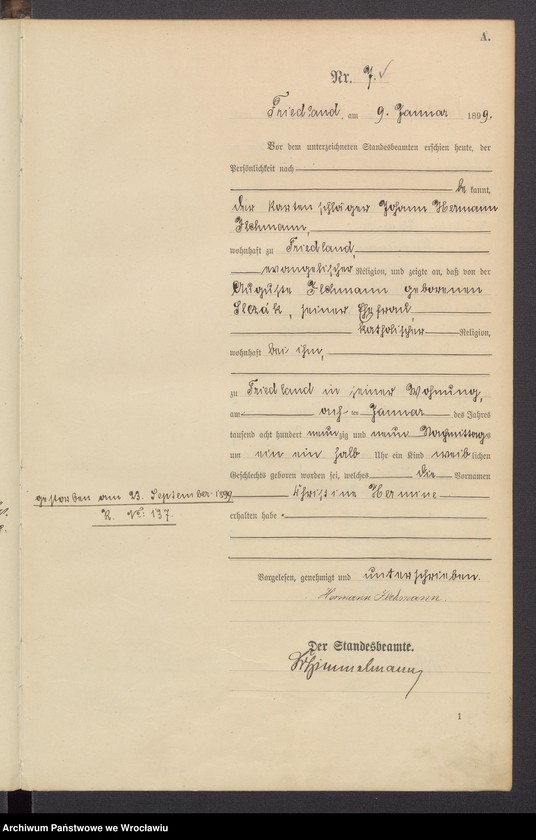 A.
Nr. 7.
Friedland, am 9. Januar 1899.
Vor dem unterzeichneten Standesbeamten erschien heute, der
Persönlichkeit nach
be kannt,
der Kartenschläger Johann Hermann
wohnhaft zu Friedland,
evangelischer Religion, und zeigte an, daß von der
Auguste geborenen
seiner Ehefrau,
katholischer Religion,
wohnhaft bei ihm,
zu Friedland in seiner Wohnung,
am Januar des Jahres
tausend acht hundert neunzig und neun Nachmittags
um ein ein halb Uhr ein Kind weiblichen
Geschlechts geboren worden sei, welches die Vornamen
gestorben am 23. September 1899
R. No: 137.
Christine Hermine
erhalten habe.
Vorgelesen, genehmigt und unterschrieben.
Hermann
Der Standesbeamte.
Himmelmann
1
Archiwum Państwowe we Wrocławiu